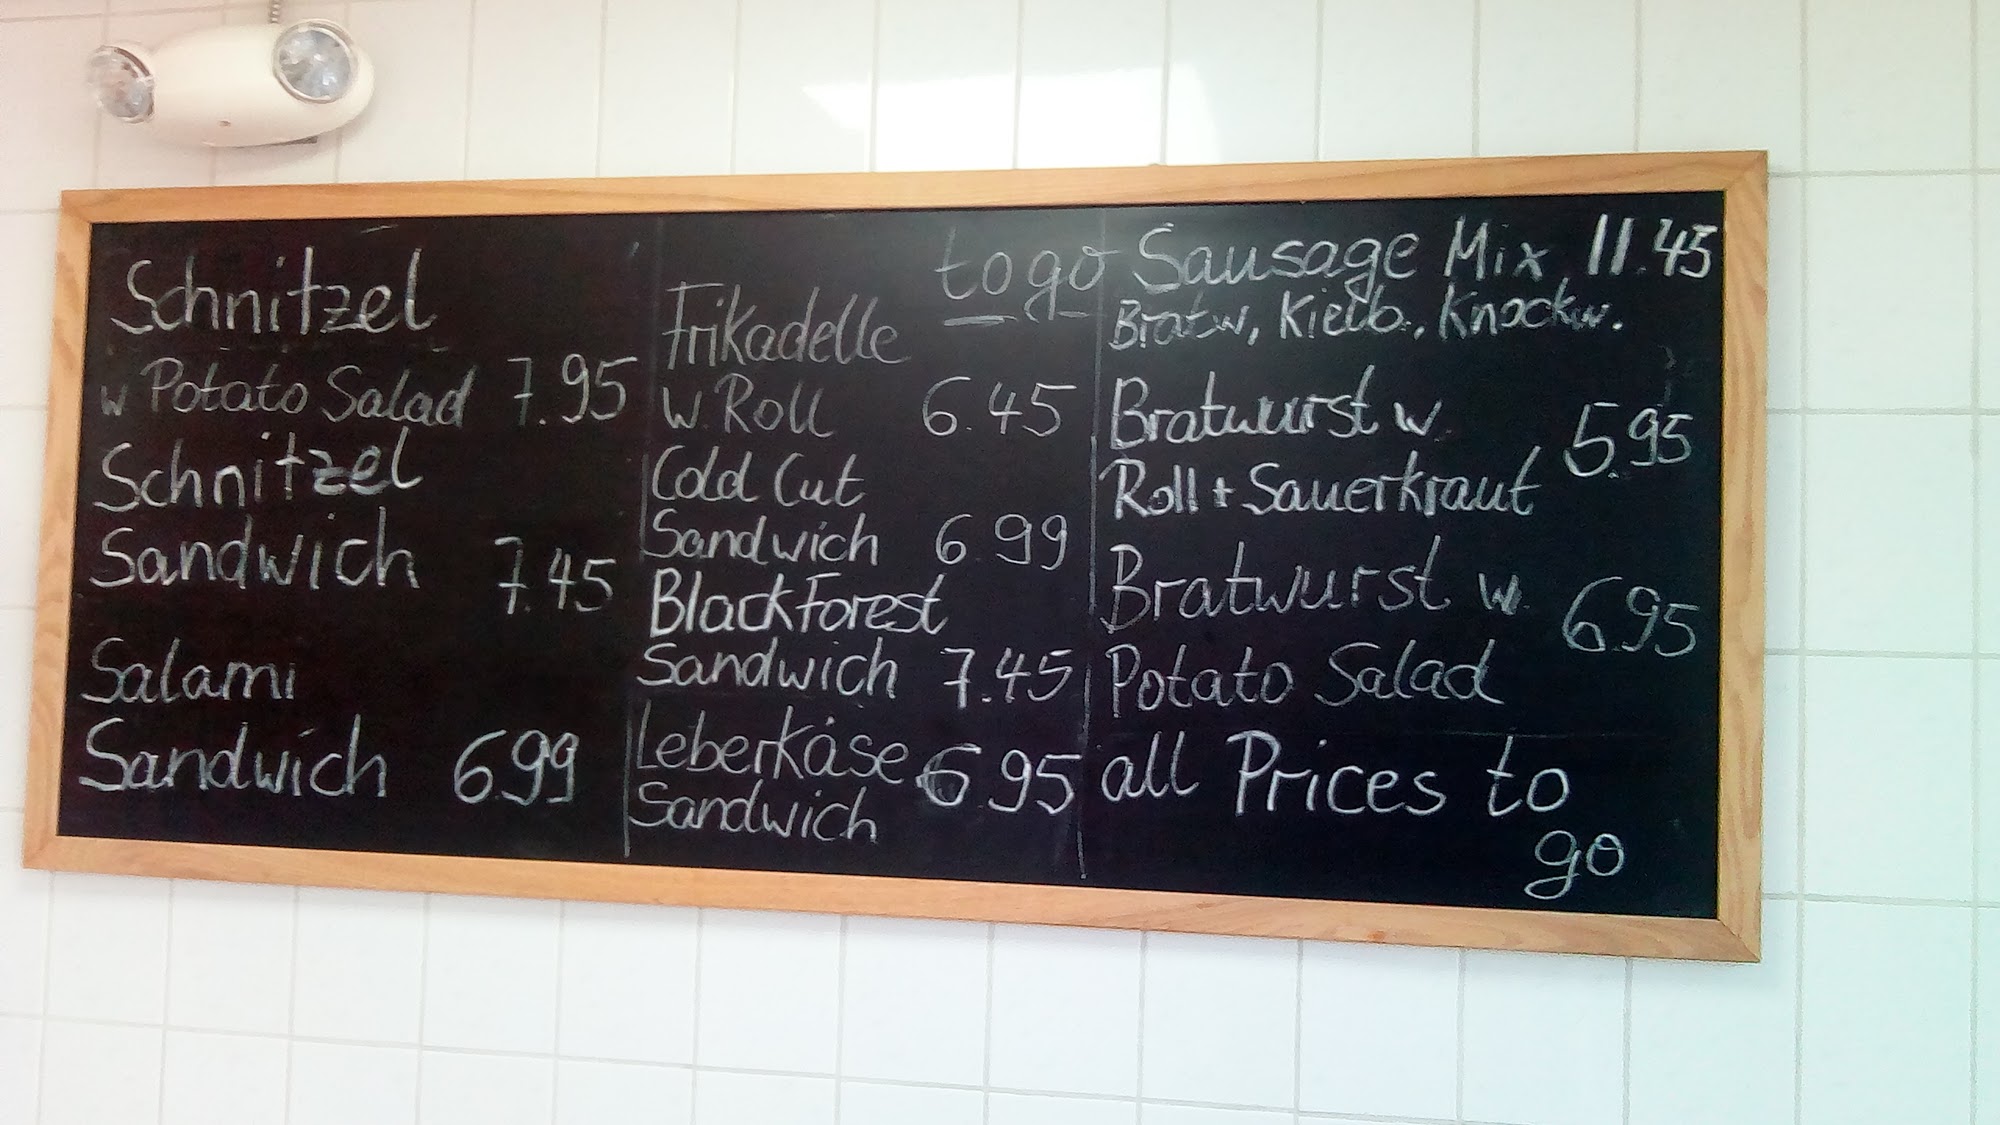 Schnitzel
w Potato Salad 7.95
Schnitzel
Sandwich 7.45
Salami
Sandwich 6.99
to go
Frikadelle
w. Roll 6.45
Cold Cut
Sandwich 6.99
Blackforest
Sandwich 7.45
Leberkäse 6.95
Sandwich
Sausage Mix 11.45
Bratw, Kielb., Knockw.
Bratwurst w 5.95
Roll + Sauerkraut
Bratwurst w. 6.95
Potato Salad
all Prices to
go